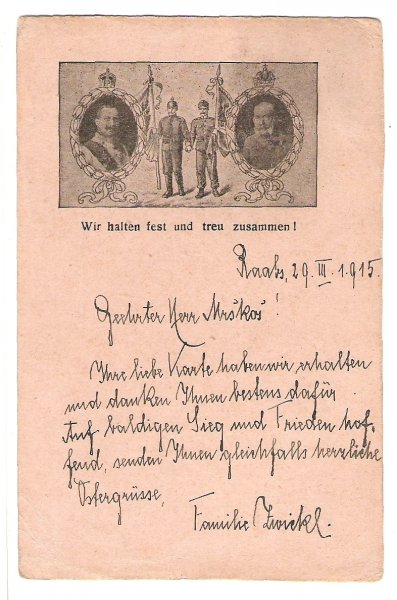 Wir halten fest und treu zusammen!
Raabs, 29. III. 1915.
Geehrter Herr Mrškoš!
Ihre liebe Karte haben wir erhalten
und danken Ihnen bestens dafür.
Auf baldigen Sieg und Frieden hof-
fend, senden Ihnen gleichfalls herzliche
Ostergrüsse,
Familie Zwickl.